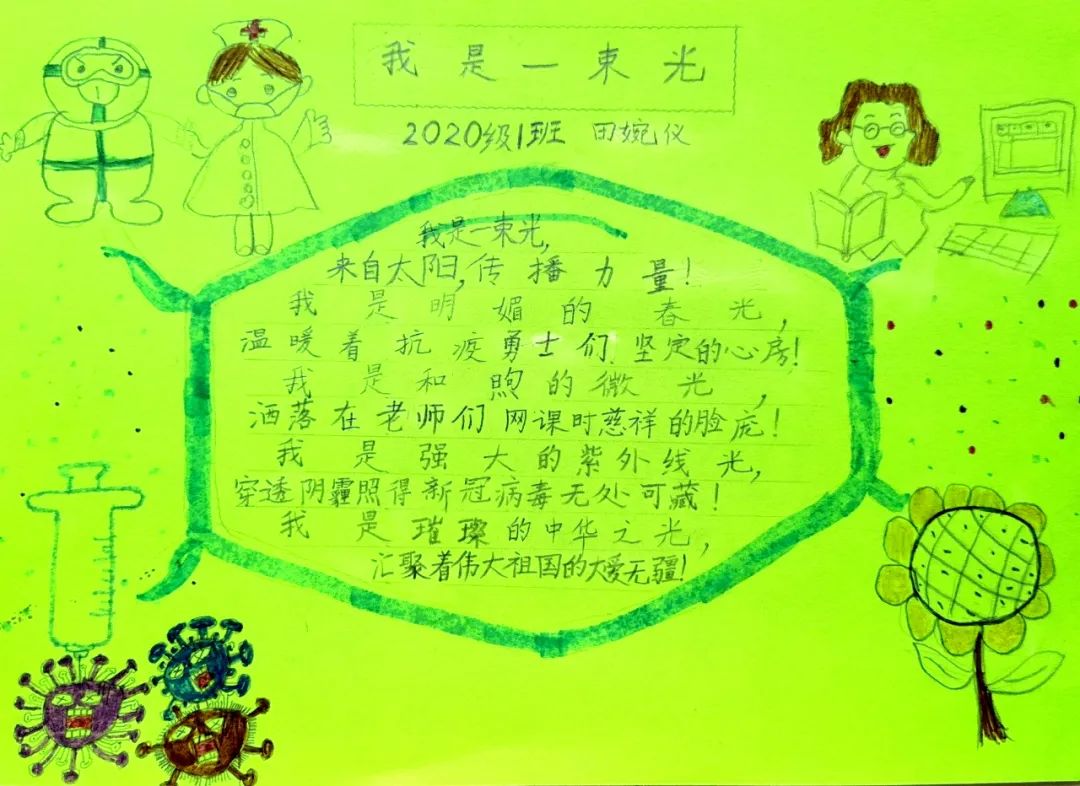 我是一束光
2020级1班 田婉仪
我是一束光,
来自太阳,传播力量!
我是明媚的春光,
温暖着抗疫勇士们坚定的心房!
我是和煦的微光,
洒落在老师们网课时慈祥的脸庞!
我是强大的紫外线光,
穿透阴霾照得新冠病毒无处可藏!
我是璀璨的中华之光,
汇聚着伟大祖国的大爱无疆!